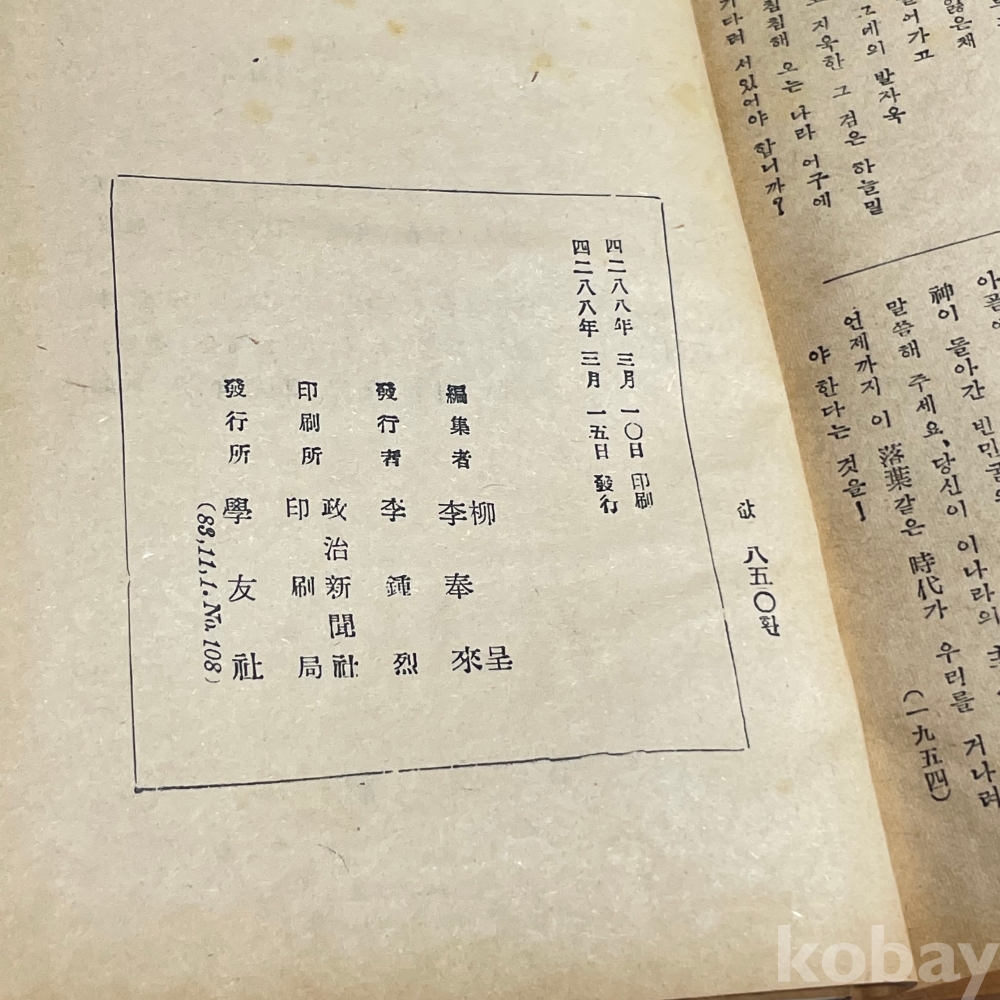 잃은채
어가고
그네의 발자욱
지욱한 그 검은 하늘밑
침침해 오는 나라 어구에
기다려 서있어야 합니까?
神이 돌아간 빈민굴의
말씀해 주세요, 당신이 이나라의
언제까지 이 落葉같은 時代가 우리를 거나려
야 한다는 것을!
(一九五四)
값 八五〇환
四二八八年 三月 一〇日 印刷
四二八八年 三月 一五日 發行
編集者 柳呈
李奉來
發行者 李鍾烈
印刷所 政治新聞社
印刷局
發行所 學友社
(83,11,1. No. 108)
kobay